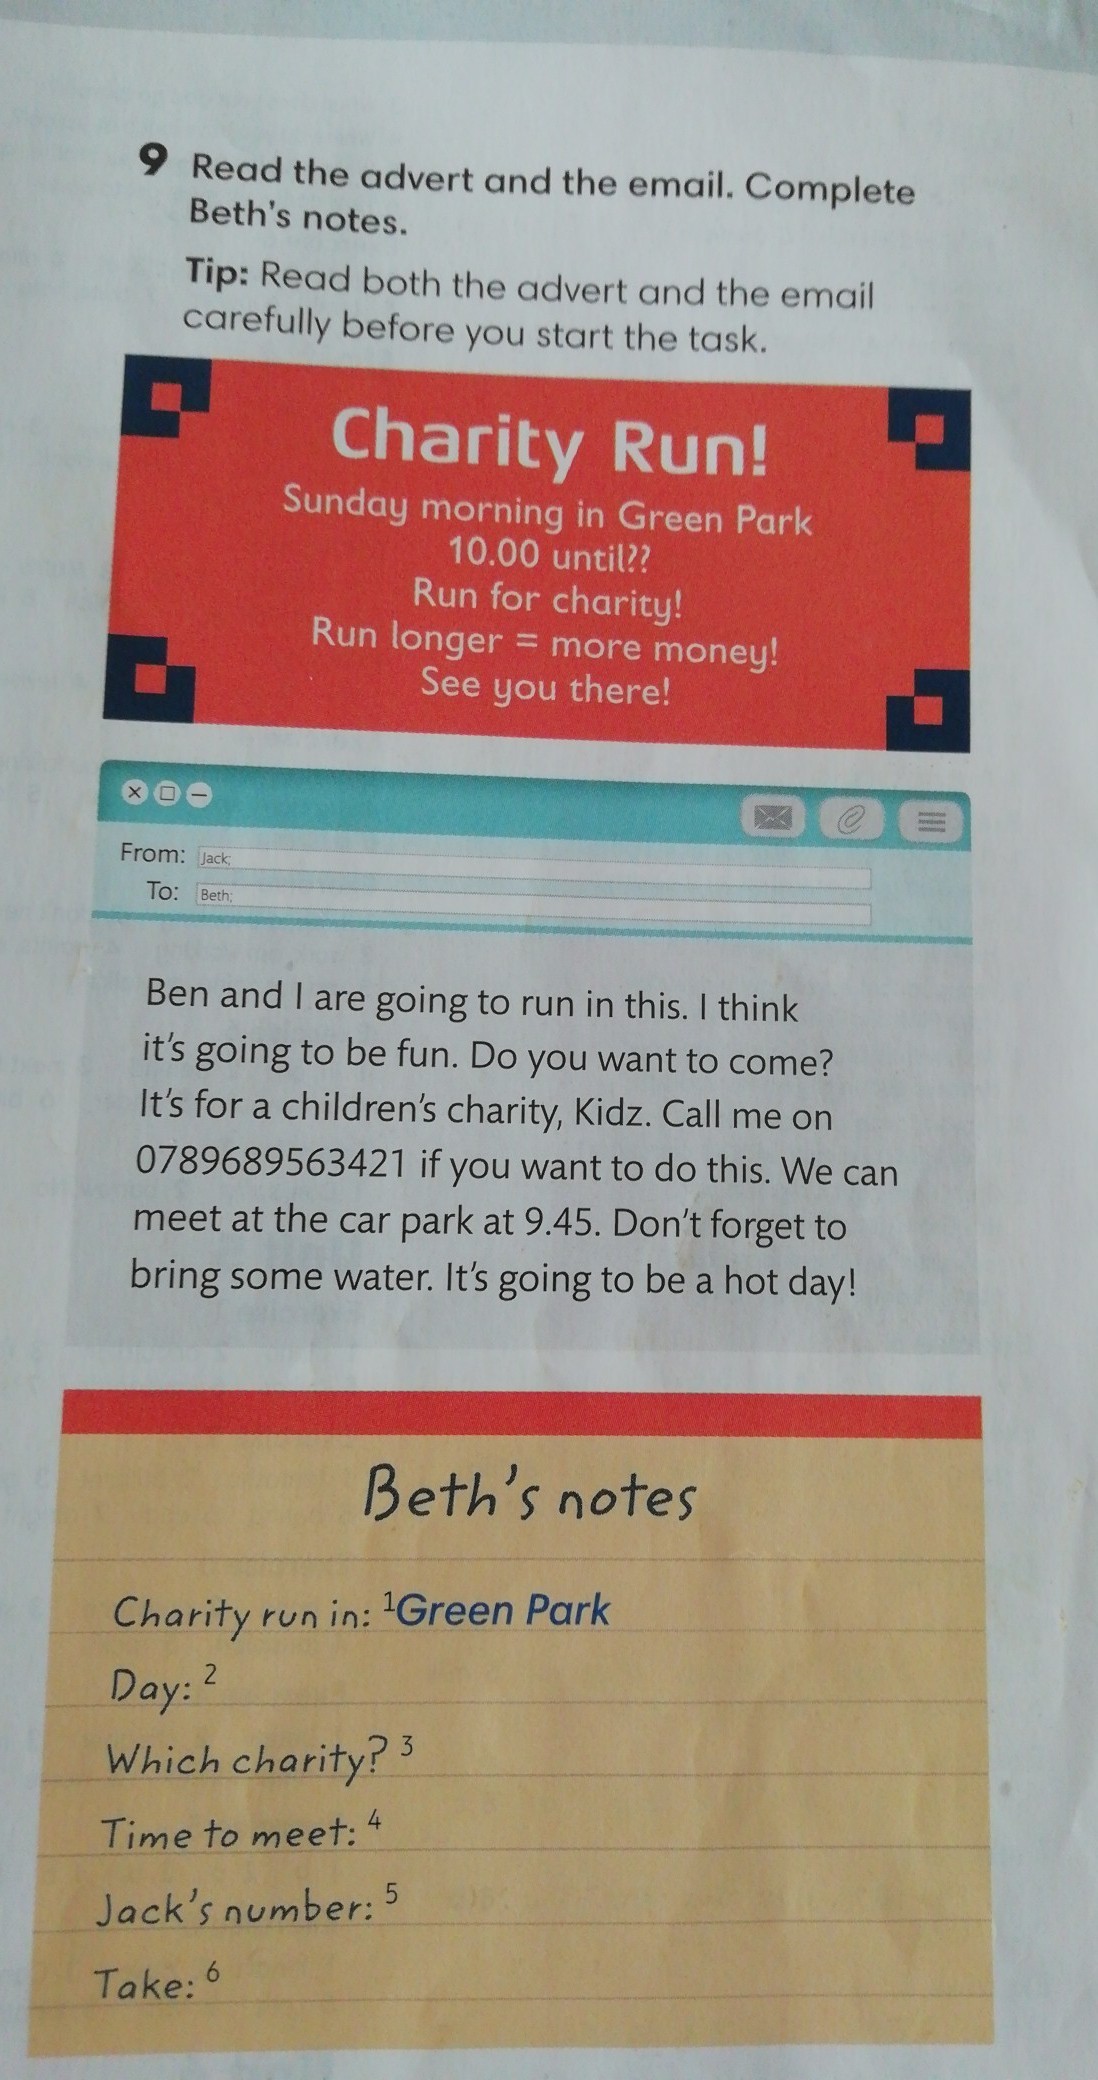 9 Read the advert and the email. Complete
Beth's notes.
Tip: Read both the advert and the email
carefully before you start the task.
Charity Run!
Sunday morning in Green Park
10.00 until??
Run for charity!
Run longer = more money!
See you there!
From: Jack;
To: Beth;
Ben and I are going to run in this. I think
it's going to be fun. Do you want to come?
It's for a children's charity, Kidz. Call me on
0789689563421 if you want to do this. We can
meet at the car park at 9.45. Don't forget to
bring some water. It's going to be a hot day!
Beth's notes
Charity run in: 1Green Park
Day: 2
Which charity? 3
Time to meet: 4
Jack's number: 5
Take: 6